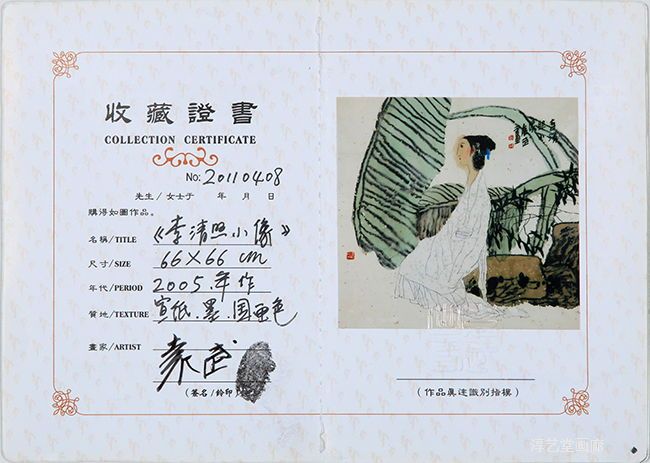 收藏證書
COLLECTION CERTIFICATE
No: 20110408
先生/女士于 年 月 日
購得如圖作品。
名稱/TITLE 《李清照小像》
尺寸/SIZE 66×66 cm
年代/PERIOD 2005.年作
質地/TEXTURE 宣纸.墨.国画色
畫家/ARTIST 袁武
(簽名/鈐印)
(作品真迹識別指模)
淳艺堂画廊